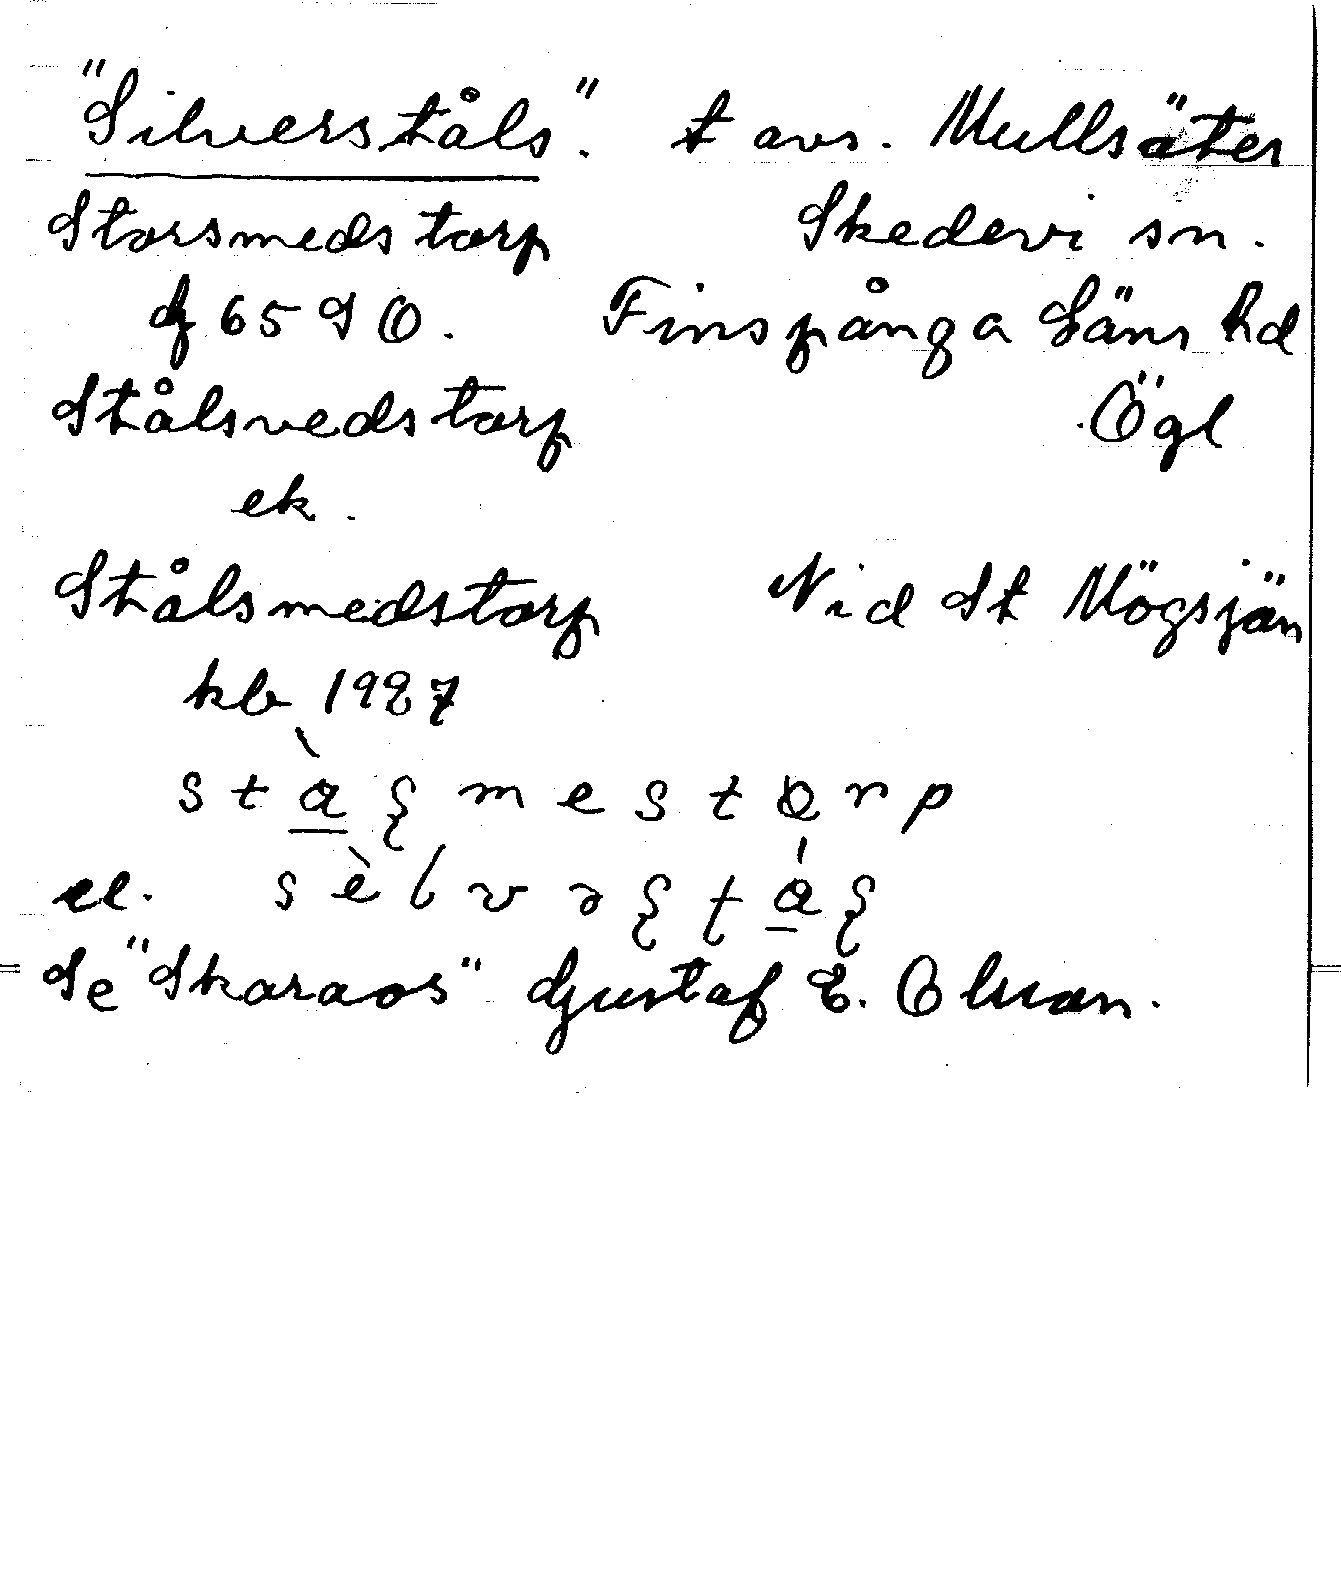 "Silverståls". t avs. Mullsäter
Storsmedstorp Skedevi sn.
f 65 SO. Finspånga Läns hd
Stålsvedstorp Ögl
ek.
Stålsmedstorp Vid St Mögsjön
kb 1927
el.
Se "Skaraos" Gustaf E. Olman.